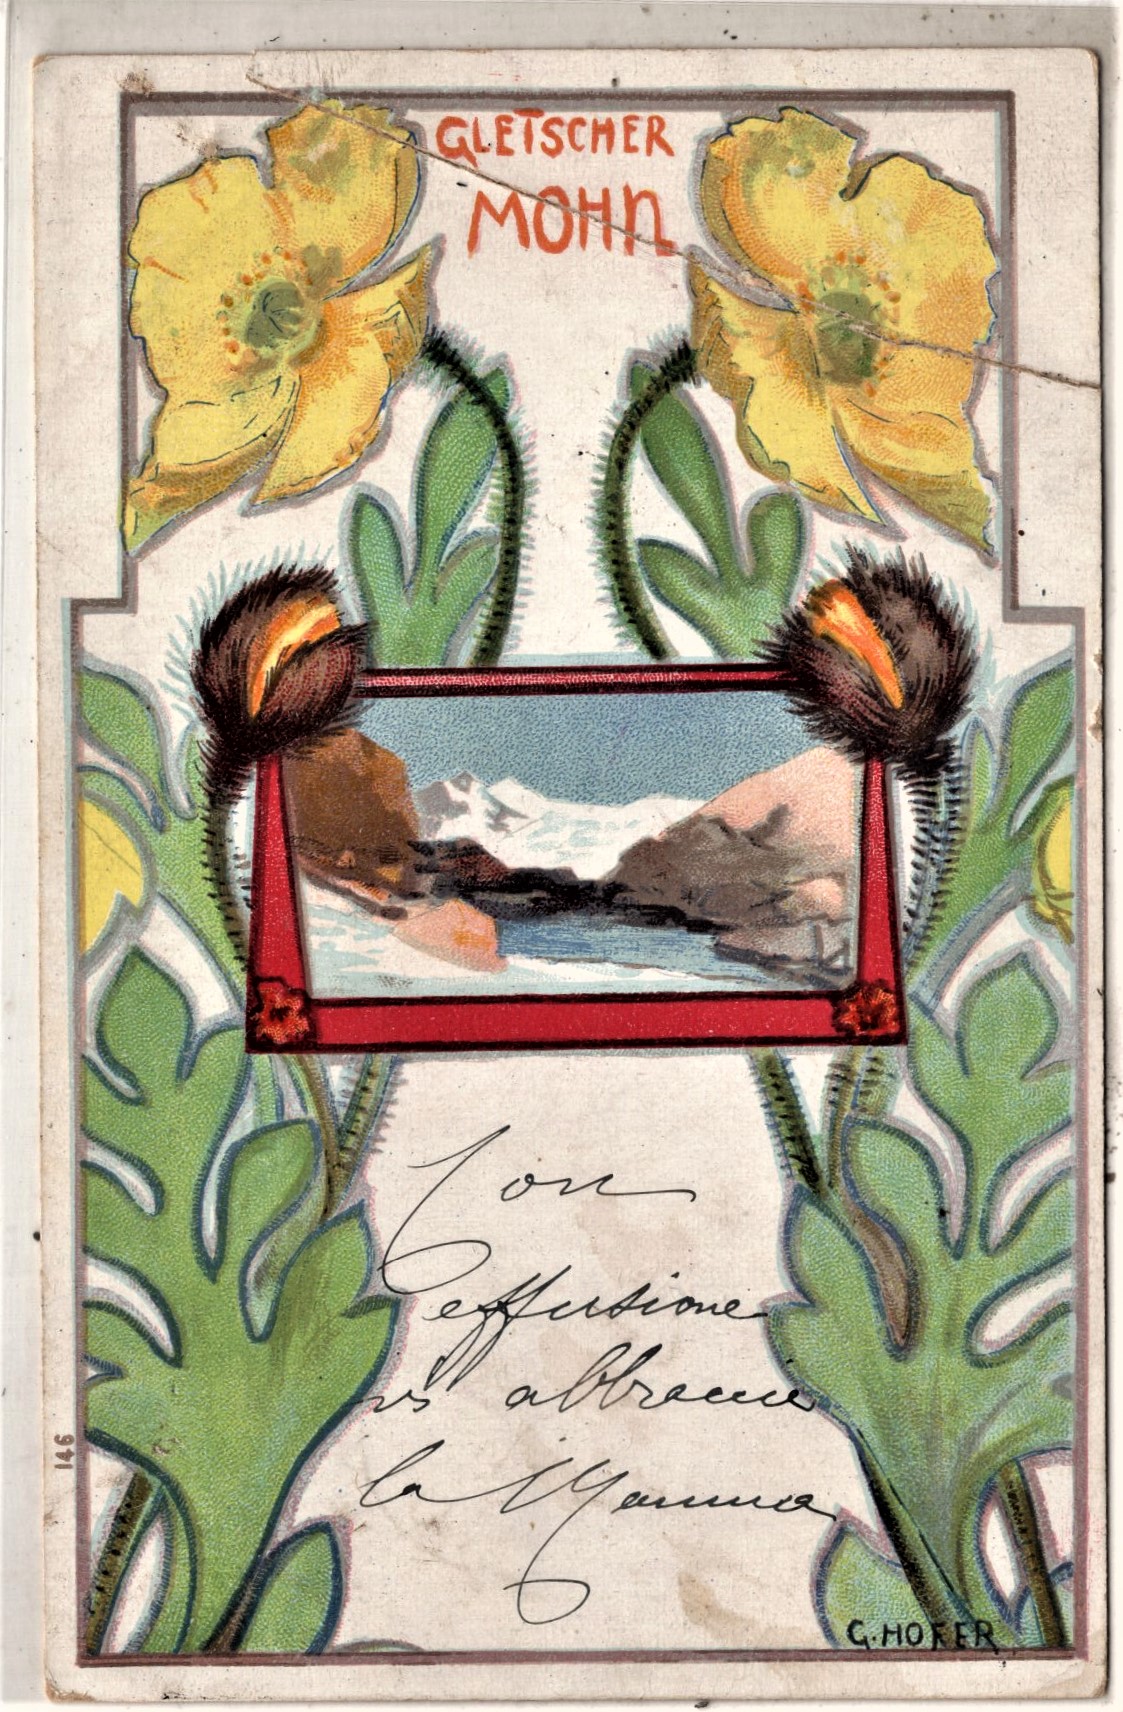 GLETSCHER
MOHN
Con
effusione
vi abbraccia
la Mamma
146
G. HOFER